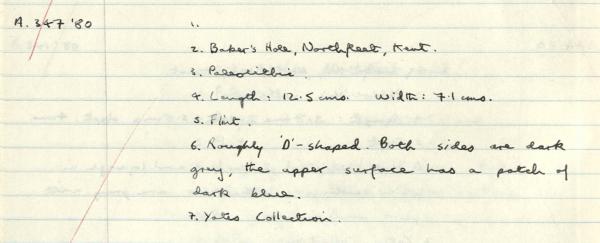 A.347 '80 "
2. Baker's Hole, Northfleet, Kent.
3. Paleolithic
4. Length: 12.5 cms. Width: 7.1 cms.
5. Flint.
6. Roughly 'D'-shaped. Both sides are dark
grey, the upper surface has a patch of
dark blue.
7. Yates Collection.